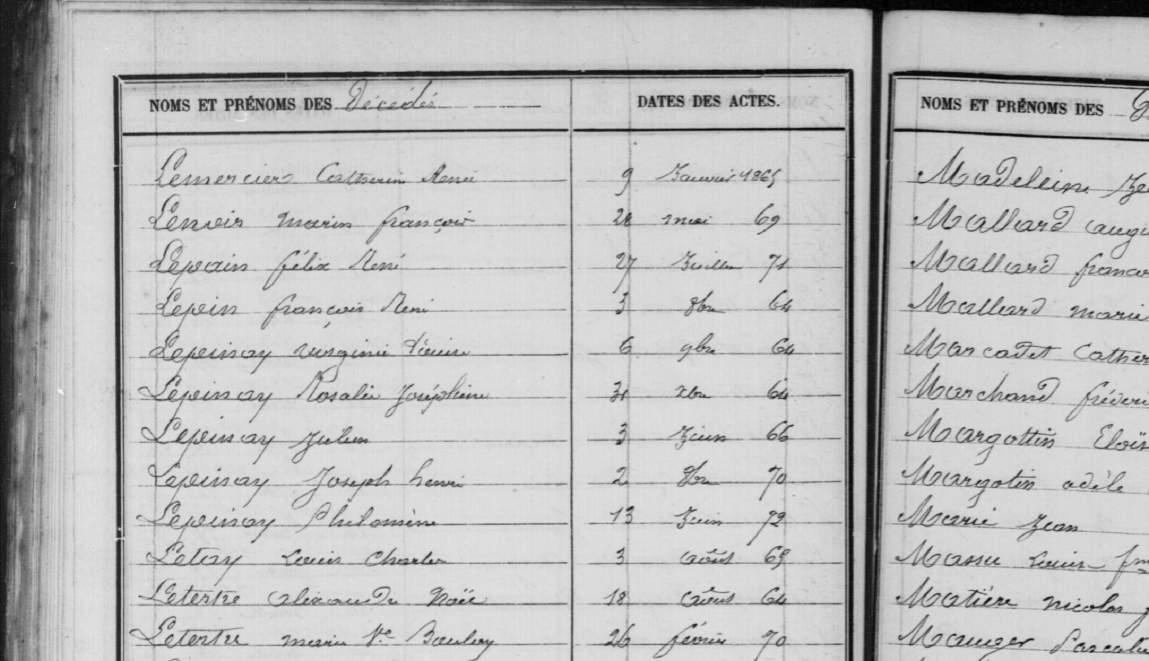 NOMS ET PRÉNOMS DES Décédés DATES DES ACTES.
Lemercier Catherin René 9 Janvier 1865
Lenoir marin françois 28 mai 69
Lepain félix René 27 Juillet 71
Lepein françois René 3 64
Lepeinay virginie Louise 6 9bre 64
Lepeinay Rosalie Joséphine 31 xbre 64
Lepeinay Jules 3 Juin 66
Lepeinay Joseph henri 2 70
Lepeinay Philomène 13 Juin 72
Letay Louis Charles 3 août 65
Letertre alexandre Noël 18 août 64
Letertre marie Ve Boulay 26 février 70
NOMS ET PRÉNOMS DES
Madeleine
Mallard augu
Mallard franço
Mallard marie
Marcadet Cather
Marchand fréderi
Margottin Eloïs
Margotin adèle
Marie Jean
Massu Louis
Matière nicolas
Mauger Pascal